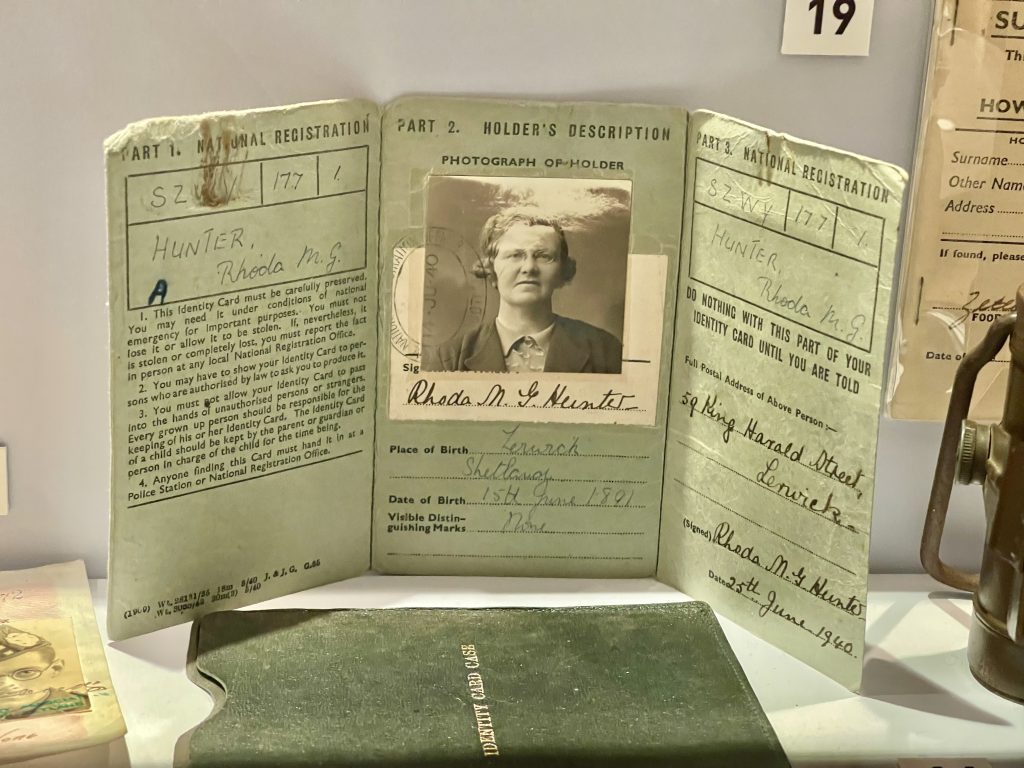 19
PART 1. NATIONAL REGISTRATION
SZWY 177 1.
HUNTER,
Rhoda M. G.
A
1. This Identity Card must be carefully preserved.
You may need it under conditions of national
emergency for important purposes. You must not
lose it or allow it to be stolen. If, nevertheless, it
is stolen or completely lost, you must report the fact
in person at any local National Registration Office.
2. You may have to show your Identity Card to per-
sons who are authorised by law to ask you to produce it.
3. You must not allow your Identity Card to pass
into the hands of unauthorised persons or strangers.
Every grown up person should be responsible for the
keeping of his or her Identity Card. The Identity Card
of a child should be kept by the parent or guardian or
person in charge of the child for the time being.
4. Anyone finding this Card must hand it in at a
Police Station or National Registration Office.
5/40 J. & J, G.
PART 2. HOLDER'S DESCRIPTION
PHOTOGRAPH OF HOLDER
Sig
Rhoda M. G. Hunter
Place of Birth Lerwick
Shetland
Date of Birth 15th June 1891
Visible Distin-
guishing Marks None
PART 3. NATIONAL REGISTRATION
SZWY 177 1.
HUNTER,
Rhoda M. G.
DO NOTHING WITH THIS PART OF YOUR
IDENTITY CARD UNTIL YOU ARE TOLD
Full Postal Address of Above Person:—
59 King Harald Street,
Lerwick
(Signed) Rhoda M. G. Hunter
Date 25th June 1940.
IDENTITY CARD CASE
SU
Thi
HOW
HO
Surname
Other Nam
Address
If found, please
FOOD
Date of